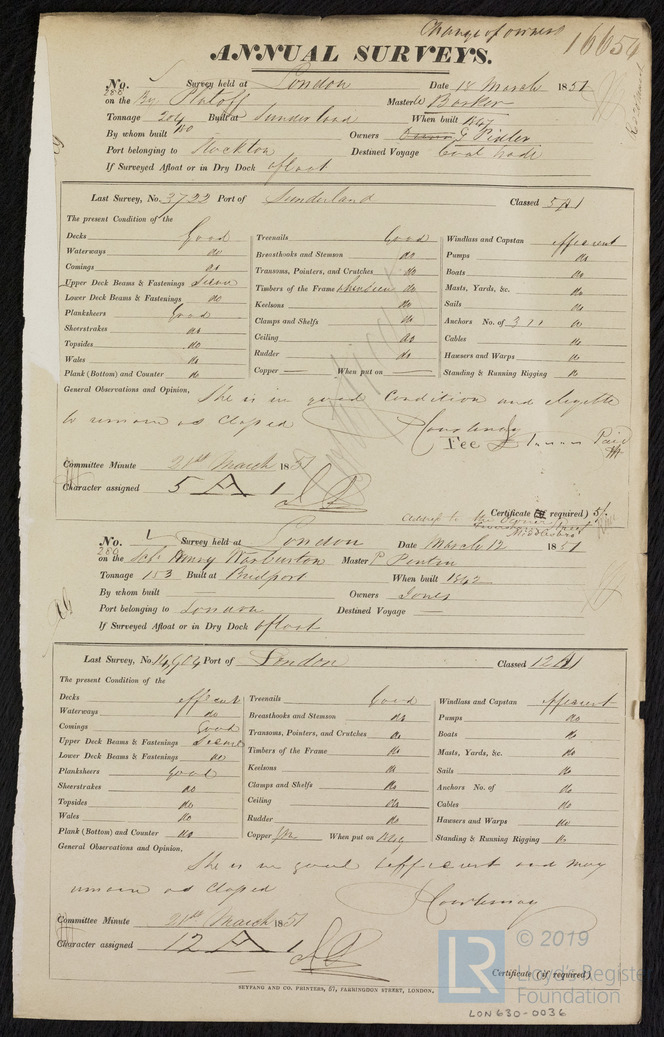 Change of owners 16654
ANNUAL SURVEYS.
No. Survey held at London Date 18 March 1851
280
on the Bg Platoff Master W Barker
Tonnage 204 Built at Sunderland When built
By whom built Owners G Pinler
Port belonging to Stockton Destined Voyage Coal trade
If Surveyed Afloat or in Dry Dock afloat
Last Survey, No. 3722 Port of Sunderland Classed 5 A 1
The present Condition of the
Decks Good Treenails Good Windlass and Capstan efficient
Waterways do Breasthooks and Stemson do Pumps do
Comings do Transoms, Pointers, and Crutches do Boats do
Upper Deck Beams & Fastenings Timbers of the Frame when seen do Masts, Yards, &c. do
Lower Deck Beams & Fastenings do Keelsons do Sails do
Planksheers Good Clamps and Shelfs do Anchors No. of 3 do
Sheerstrakes do Ceiling do Cables do
Topsides do Rudder do Hawsers and Warps do
Wales do Copper — When put on — Standing & Running Rigging do
Plank (Bottom) and Counter do
General Observations and Opinion, She is in good Condition and eligible
to remain as Classed Courtenay
Fee Paid
Committee Minute 21st March 1851
Character assigned 5 A 1
Certificate required) 5/-
the Owner
Middlesbro
No. Survey held at London Date March 12 1851
280
on the Sch Henry Warburton Master P
Tonnage 153 Built at Bridport When built 1842
By whom built — Owners Jones
Port belonging to London Destined Voyage —
If Surveyed Afloat or in Dry Dock afloat
Last Survey, No. 14,904 Port of London Classed 12 A 1
The present Condition of the
Decks efficient Treenails Good Windlass and Capstan efficient
Waterways do Breasthooks and Stemson do Pumps do
Comings Good Transoms, Pointers, and Crutches do Boats do
Upper Deck Beams & Fastenings Timbers of the Frame do Masts, Yards, &c. do
Lower Deck Beams & Fastenings do Keelsons do Sails do
Planksheers Good Clamps and Shelfs do Anchors No. of do
Sheerstrakes do Ceiling do Cables do
Topsides do Rudder do Hawsers and Warps do
Wales do Copper When put on Standing & Running Rigging do
Plank (Bottom) and Counter do
General Observations and Opinion,
She is in good & efficient and may
remain as Classed Courtenay
Committee Minute 21st March 1851
Character assigned 12 A 1
Certificate (if required)
SEYFANG AND CO. PRINTERS, 57, FARRINGDON STREET, LONDON.
LR © 2019
Lloyd's Register
Foundation
LON630-0036